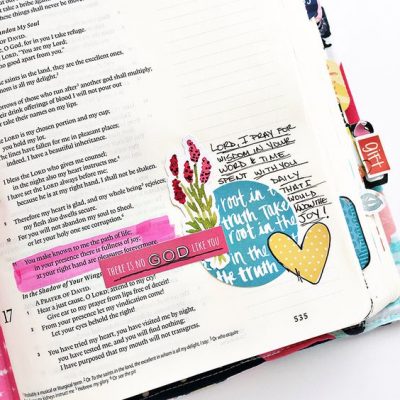 take a bribe against
these things shall never be mo
My Soul
OF DAVID.
O God, for in you I take refuge.
LORD, "You are my Lord;
no good apart from you."
the saints in the land, they are the excellent ones,
whom is all my delight.
sorrows of those who run after another god shall multiply;
their drink offerings of blood I will not pour out
take their names on my lips.
LORD is my chosen portion and my cup;
you hold my lot.
lines have fallen for me in pleasant places;
indeed, I have a beautiful inheritance.
I bless the LORD who gives me counsel;
in the night also my heart instructs me.
I have set the LORD always before me;
because he is at my right hand, I shall not be shaken.
Therefore my heart is glad, and my whole being rejoices;
my flesh also dwells secure.
For you will not abandon my soul to Sheol,
or let your holy one see corruption.
You make known to me the path of life;
in your presence there is fullness of joy;
at your right hand are pleasures forevermore.
In the Shadow of Your Wings
17
A PRAYER OF DAVID.
Hear a just cause, O LORD; attend to my cry!
Give ear to my prayer from lips free of deceit!
From your presence let my vindication come!
Let your eyes behold the right!
You have tried my heart, you have visited me by night,
you have tested me, and you will find nothing;
I have purposed that my mouth will not transgress.
535
LORD, I PRAY FOR
WISDOM IN YOUR
WORD & TIME
SPENT WITH YOU
DAILY
THAT I
WOULD
JOY!
THERE IS NO GOD LIKE YOU
root in th
truth take
root in the
in the
the truth
gift